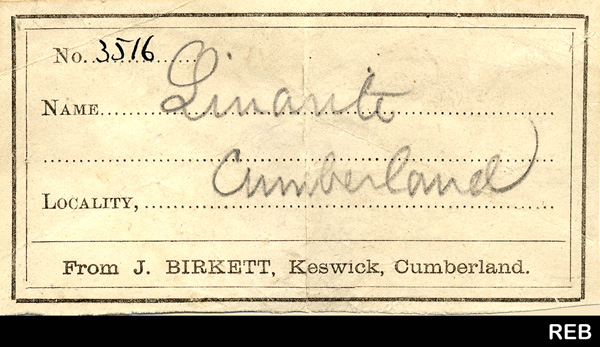 No. 3516
NAME Linarite
Cumberland
LOCALITY,
From J. BIRKETT, Keswick, Cumberland.
REB